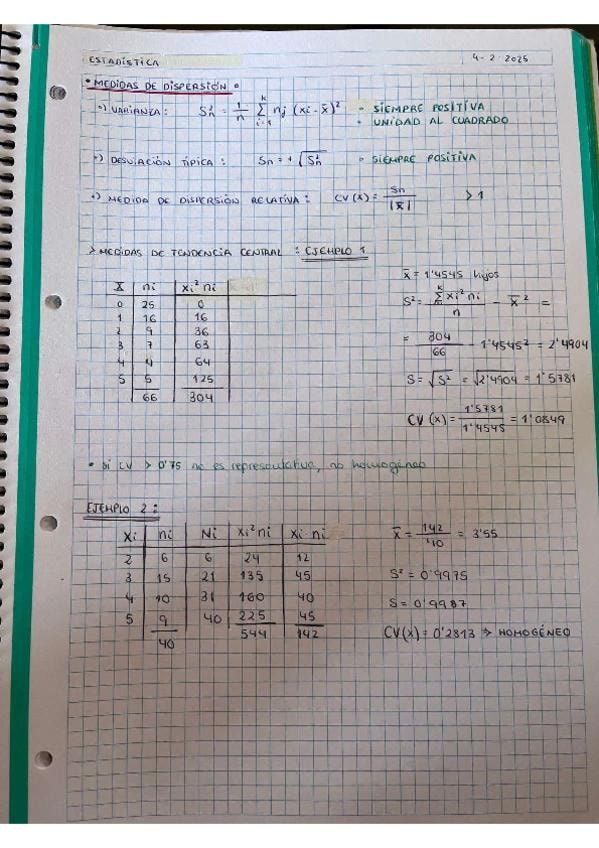 ESTADÍSTICA 4-2-2025
• MEDIDAS DE DISPERSIÓN •
•) VARIANZA: S²n = 1/n Σ(i=1, k) nj (xi - x̄)² • SIEMPRE POSITIVA
• UNIDAD AL CUADRADO
•) DESVIACIÓN TÍPICA: Sn = + √S²n • SIEMPRE POSITIVA
•) MEDIDA DE DISPERSIÓN RELATIVA: CV(x) = Sn/|x̄| > 1
> MEDIDAS DE TENDENCIA CENTRAL: EJEMPLO 1
X ni xi² ni
0 25 0
1 16 16
2 9 36
3 7 63
4 4 64
5 5 125
66 304
x̄ = 1'4545 hijos
S² = Σ(k) xi² ni / n - x̄² =
= 304/66 - 1'4545² = 2'4904
S = √S² = √2'4904 = 1'5781
CV (x) = 1'5781/1'4545 = 1'0849
• Si CV > 0'75 no es representativa, no homogéneo
EJEMPLO 2:
Xi ni Ni Xi² ni Xi ni
2 6 6 24 12
3 15 21 135 45
4 10 31 160 40
5 9 40 225 45
40 544 142
x̄ = 142/40 = 3'55
S² = 0'9975
S = 0'9987
CV(x) = 0'2813 → HOMOGÉNEO